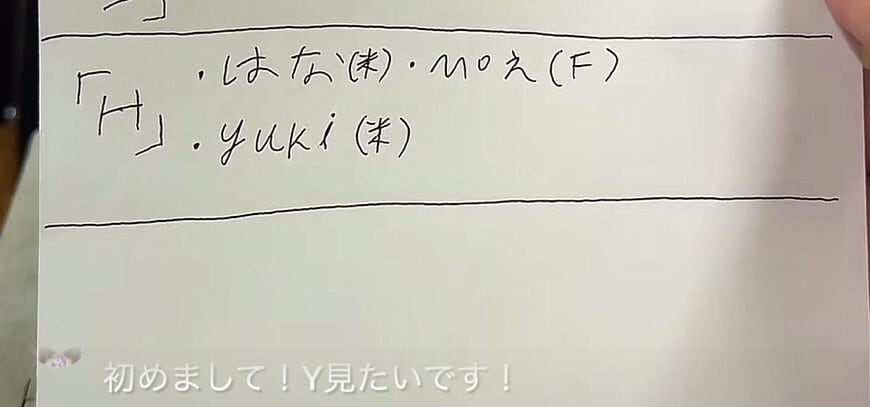 ・はな(米)・moえ(F)
「H」
・yuki(米)
初めまして！Y見たいです！